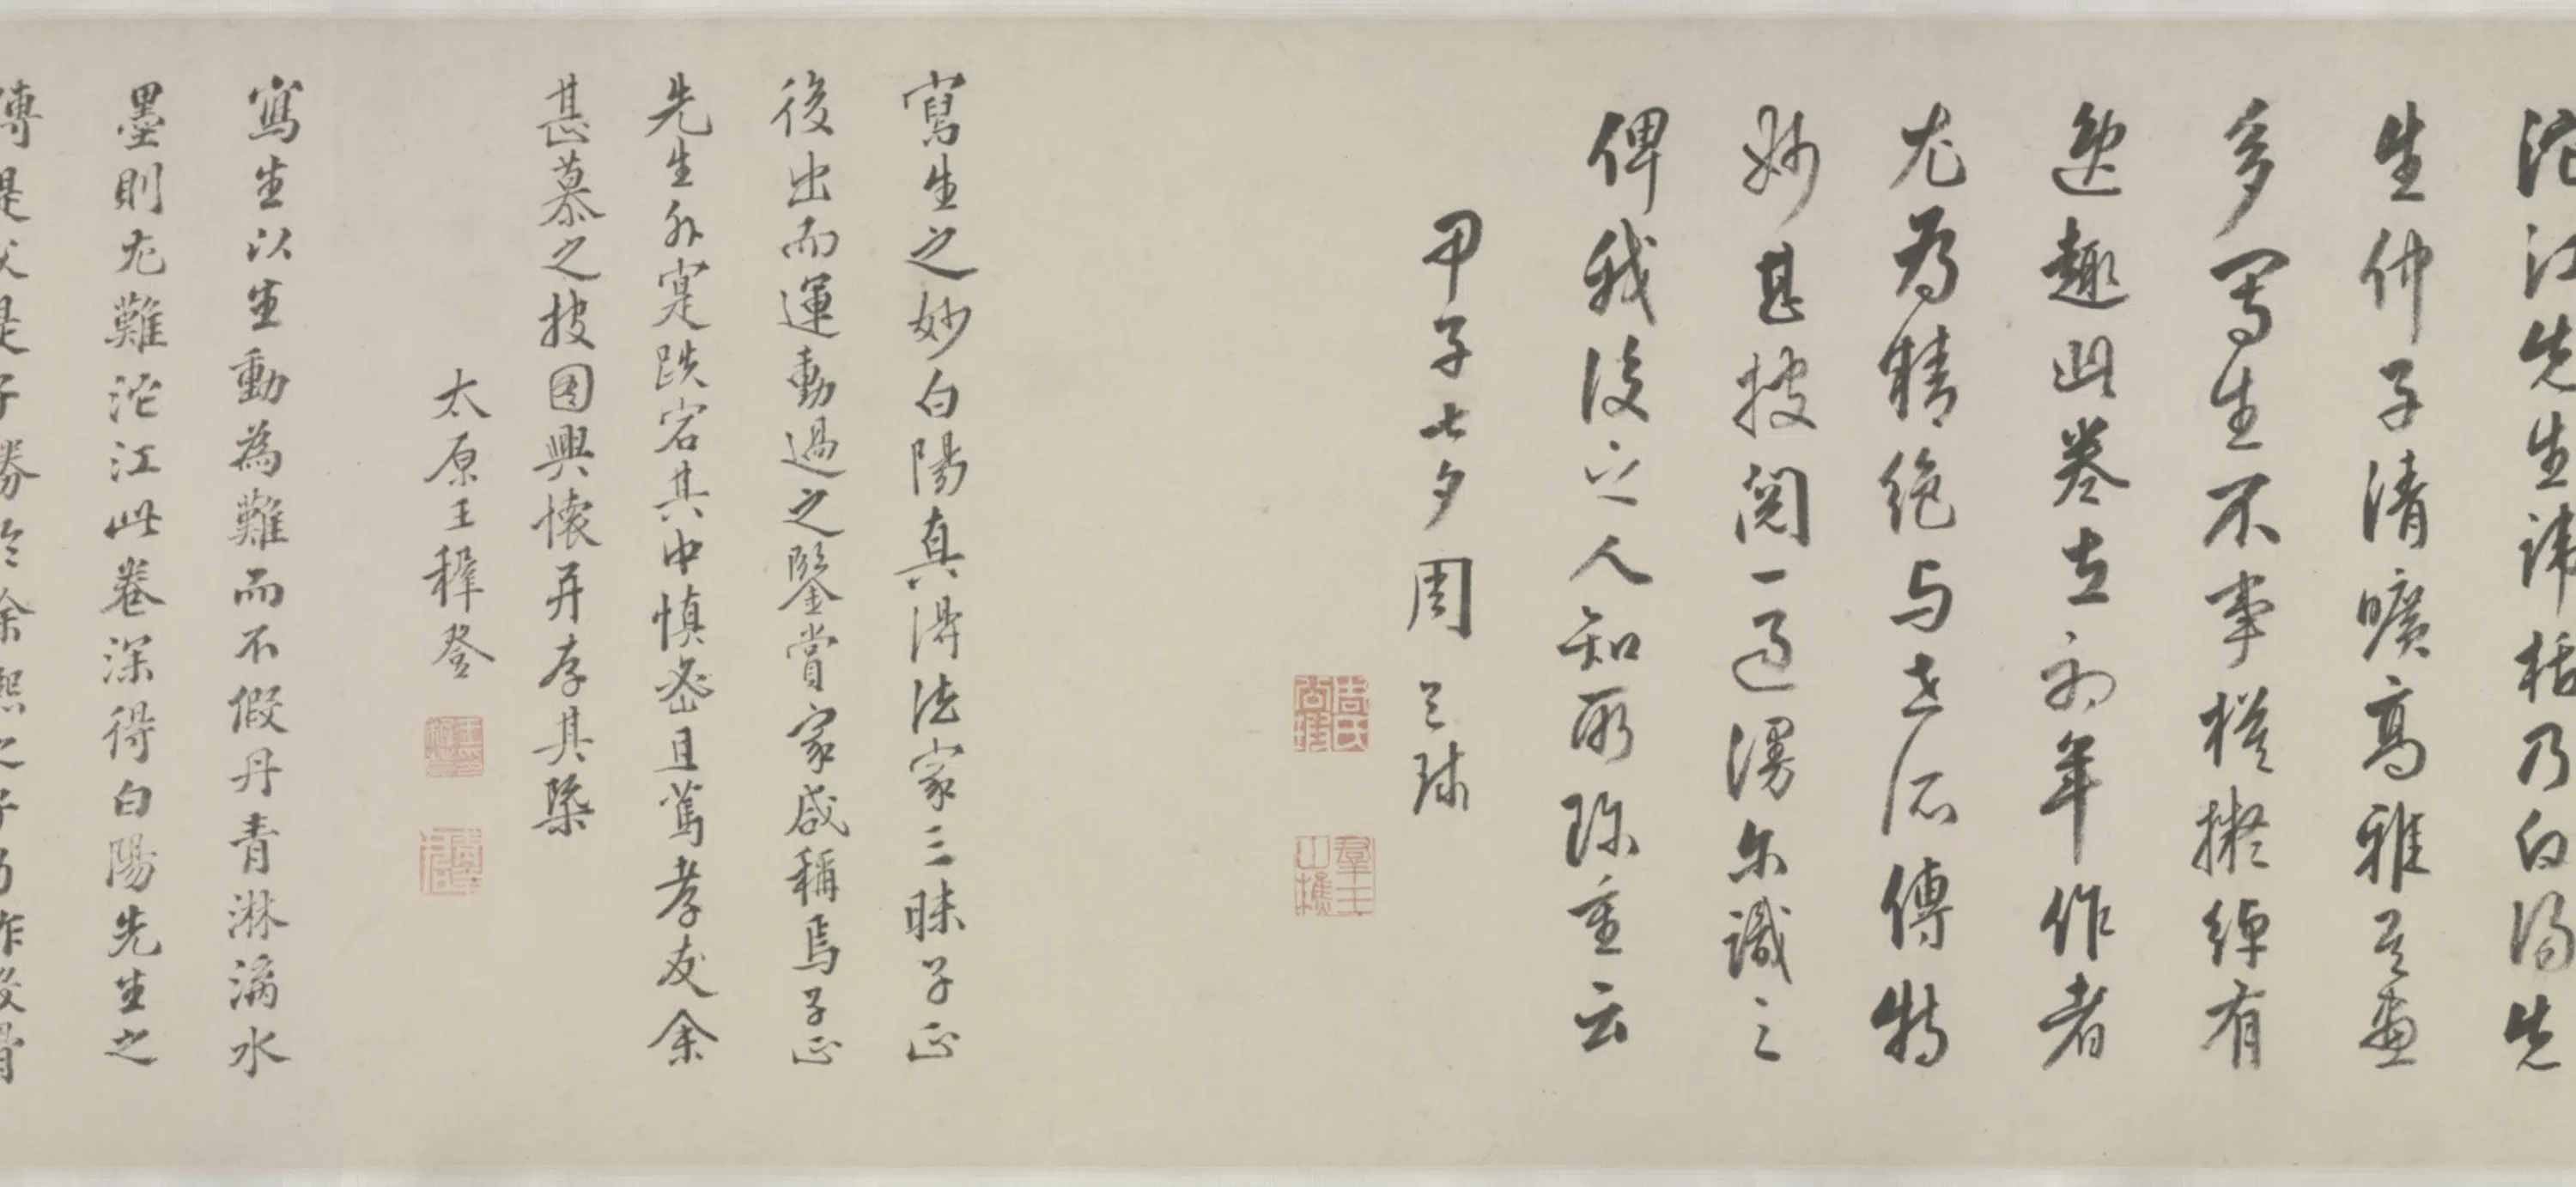 沱江先生諱栝乃白陽先
生仲子清曠高雅其畫
多寫生不事模擬綽有
逸趣此卷在初年作者
尤為精絕与世所傳特
妙甚披閱一過漫尔識之
俾我後之人知所珍重云
甲子七夕周之
周氏
羣玉山樵
寫生之妙白陽真得法家三昧子正
後出而運動過之鑒賞家咸稱焉子正
先生外寔跌宕其中慎密且篤孝友余
甚慕之披图興懷并存其槩
太原王穉登
寫生以生動為難而不假丹青淋漓水
墨則尤難沱江此卷深得白陽先生之
傳是父是子